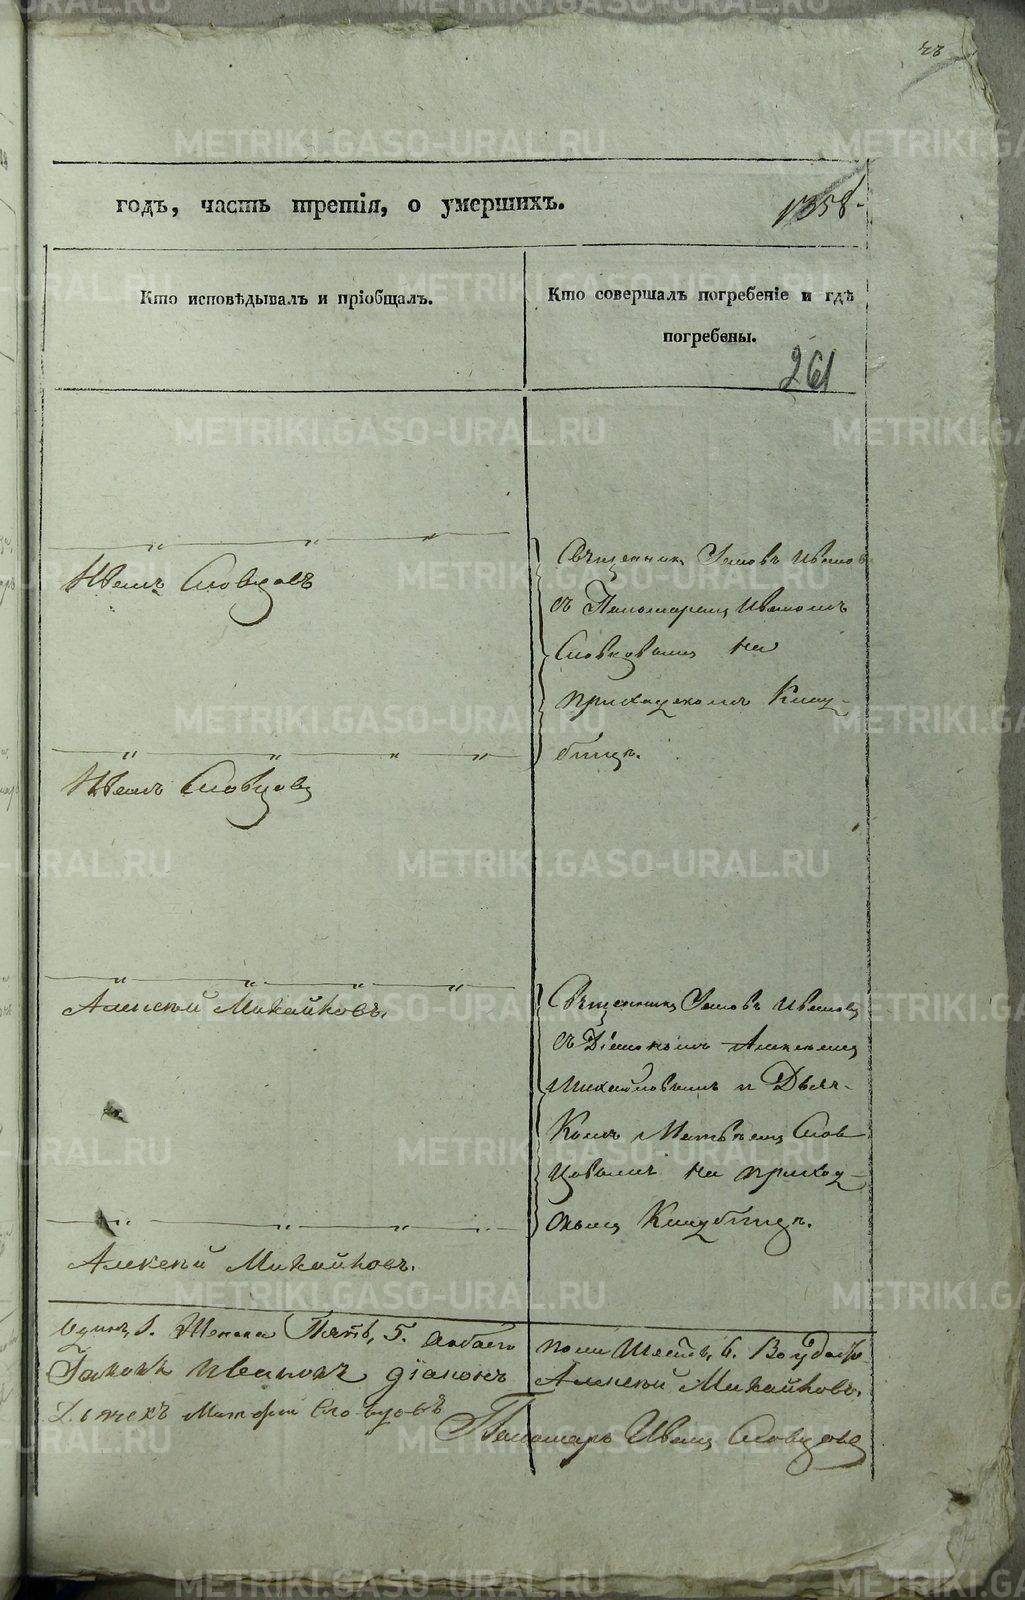 годъ, часть третія, о умершихъ.
1358
Кто исповѣдывалъ и пріобщалъ.
Кто совершалъ погребеніе и гдѣ
погребены.
261
Иванъ Словцовъ
Священникъ Іаковъ Иванов
съ Пономаремъ Иваномъ
Словцовымъ на
приходскомъ Клад-
бищѣ.
Иванъ Словцовъ
Алексѣй Михайловъ.
Священникъ Іаковъ Ивановъ
съ Діакономъ Алексѣемъ
Михайловымъ и Дьяч-
комъ Матвѣемъ Слов
цовымъ на приход-
скомъ Кладбищѣ.
Алексѣй Михайловъ.
Одинъ 1. Женска Пять, 5. обоего
пола Шесть, 6.
Іаковъ Ивановъ діаконъ
Алексѣй Михайловъ.
Дьячекъ Матфей Словцовъ
Пономарь Иванъ Словцовъ
METRIKI.GASO-URAL.RU